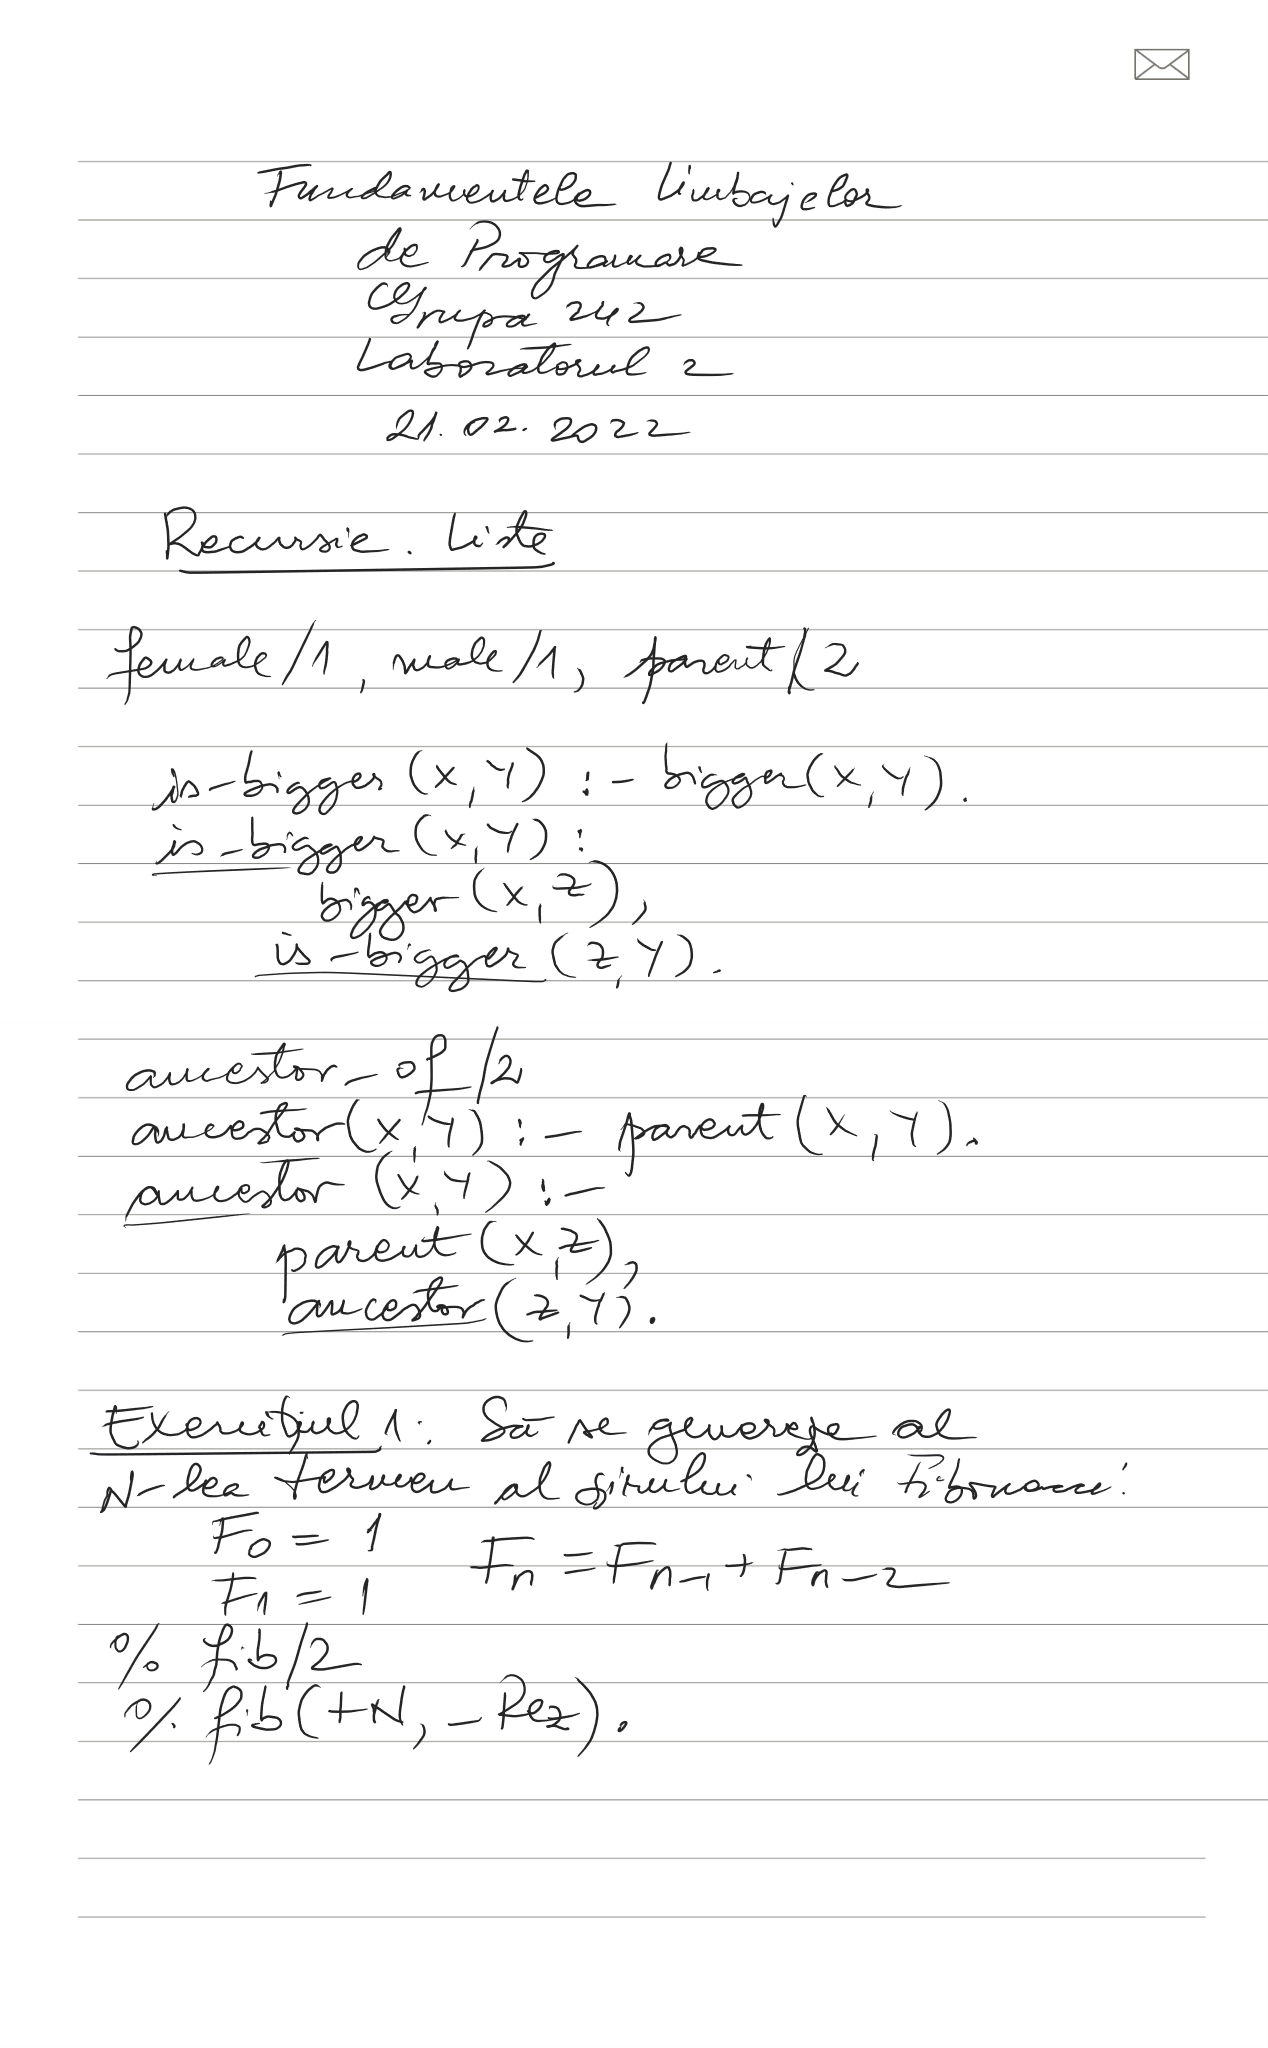 Fundamentele limbajelor
de Programare
Grupa 242
Laboratorul 2
21.02.2022
Recursie. Liste
female/1, male/1, parent/2
is-bigger(X,Y) :- bigger(X,Y).
is-bigger(X,Y) :
bigger(X,Z),
is-bigger(Z,Y).
ancestor-of/2
ancestor(X,Y) :- parent(X,Y).
ancestor(X,Y) :-
parent(X,Z),
ancestor(Z,Y).
Exercițiul 1: Să se genereze al
N-lea termen al șirului lui Fibonacci.
F₀ = 1
F₁ = 1 Fₙ = Fₙ₋₁ + Fₙ₋₂
% fib/2
% fib(+N, -Rez).